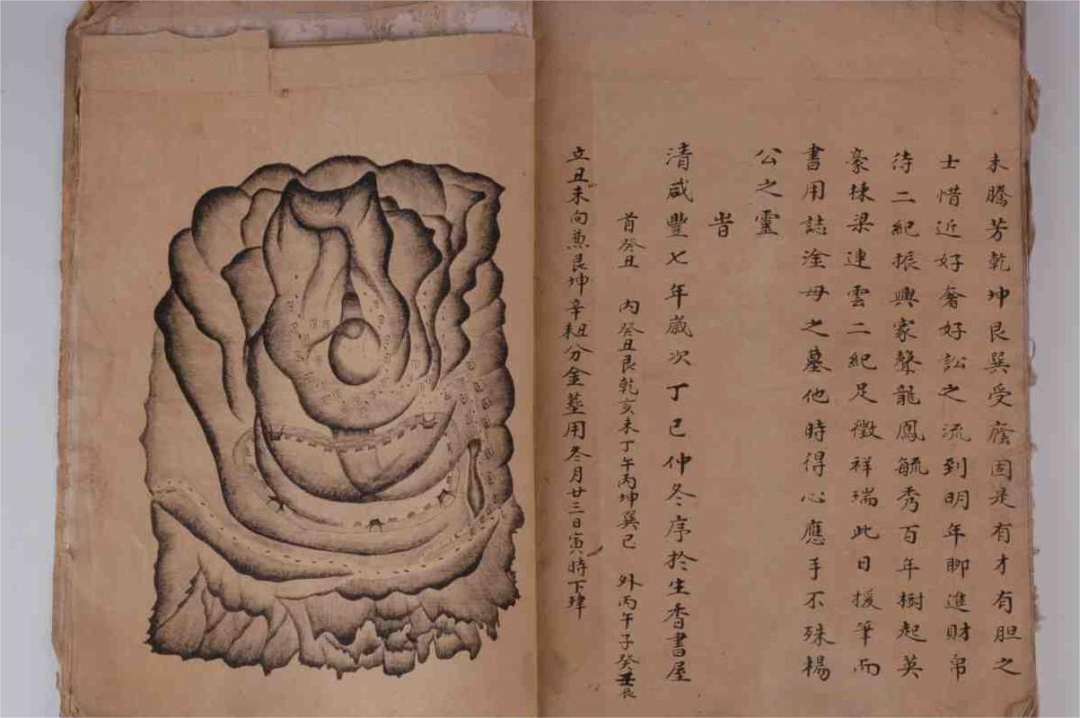 未騰芳乾坤艮巽受廕固是有才有胆之
士惜近好奢好訟之流到明年聊進財帛
待二紀振興家聲龍鳳毓秀百年樹起英
豪棟梁連雲二紀足徵祥瑞此日援筆而
書用誌淦母之墓他時得心應手不殊楊
公之靈
旹
清咸豐七年歲次丁巳仲冬序於生香書屋
首癸丑 內癸丑艮乾亥未丁午丙坤巽巳 外丙午子癸
立丑未向兼艮坤辛丑辛未分金塟用冬月廿三日寅時下肂